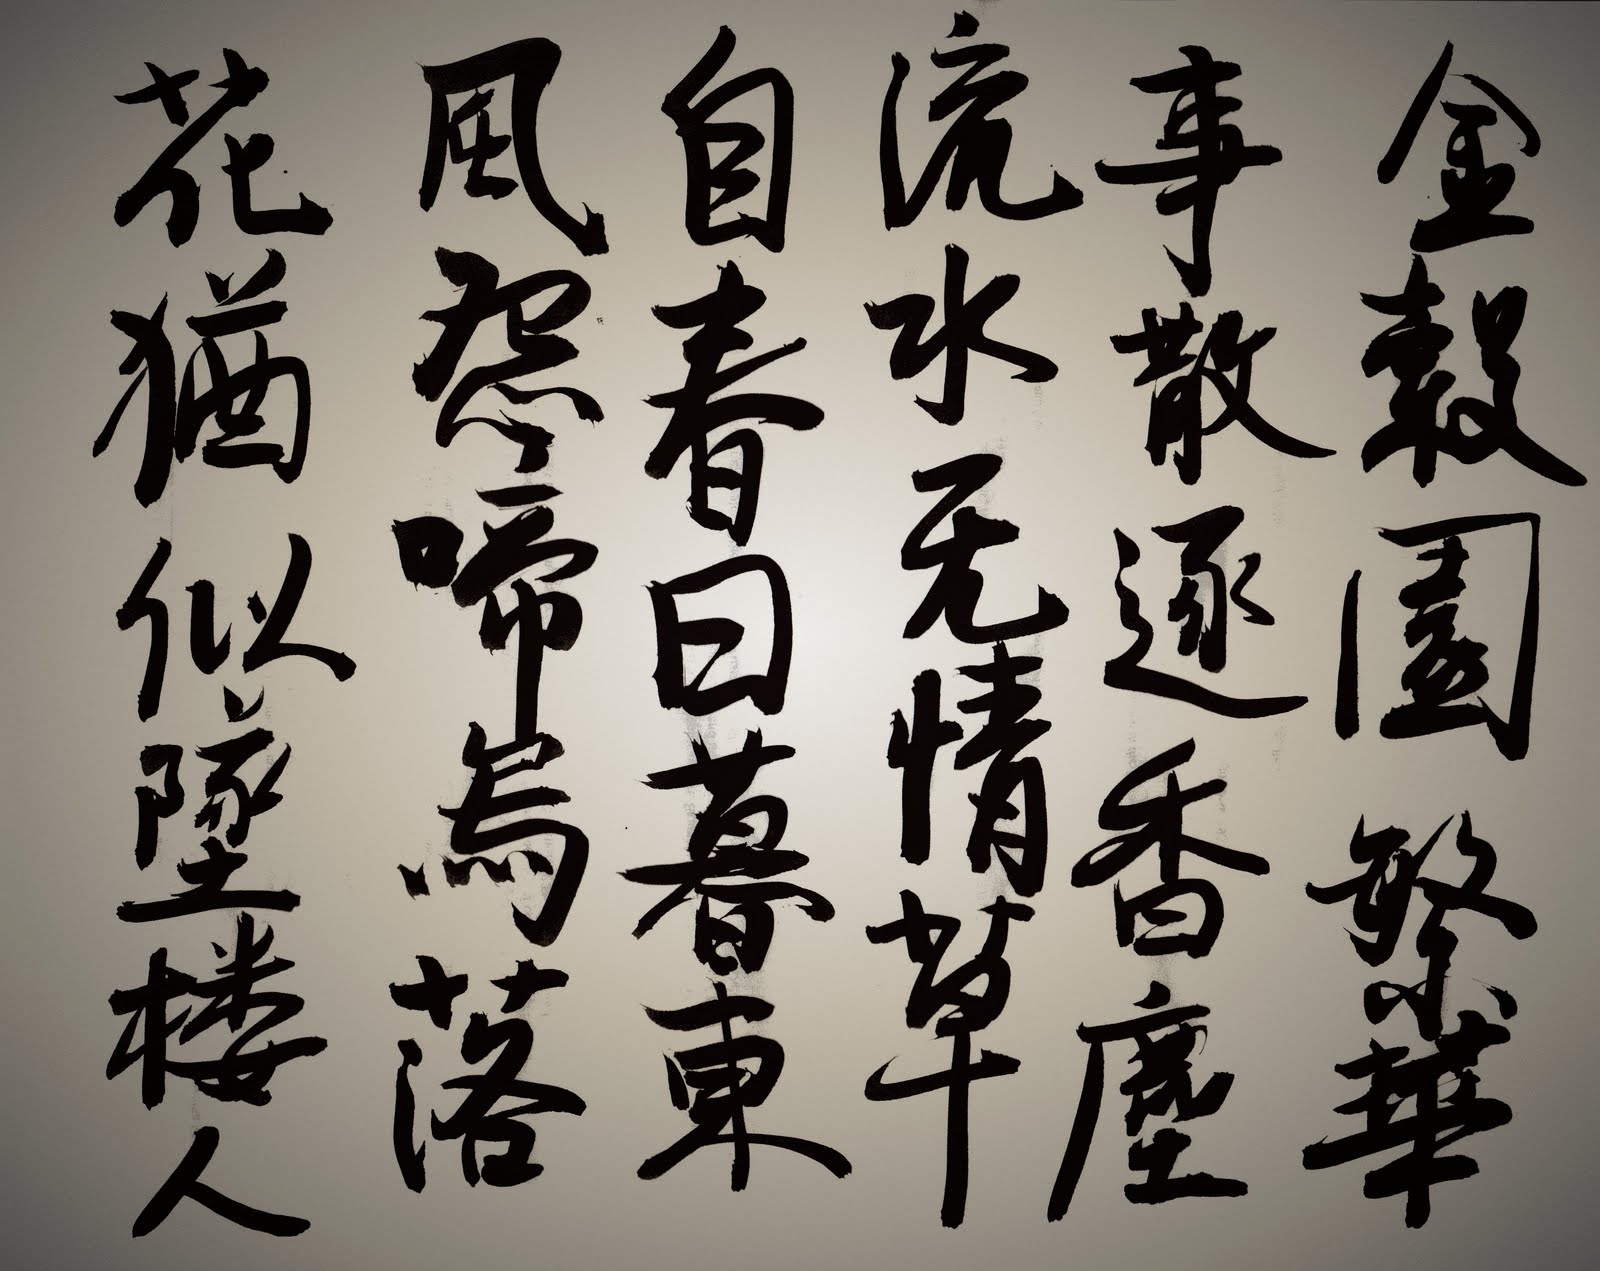 金穀園繁華
事散逐香塵
流水无情草
自春日暮東
風怨啼鳥落
花猶似墜楼人